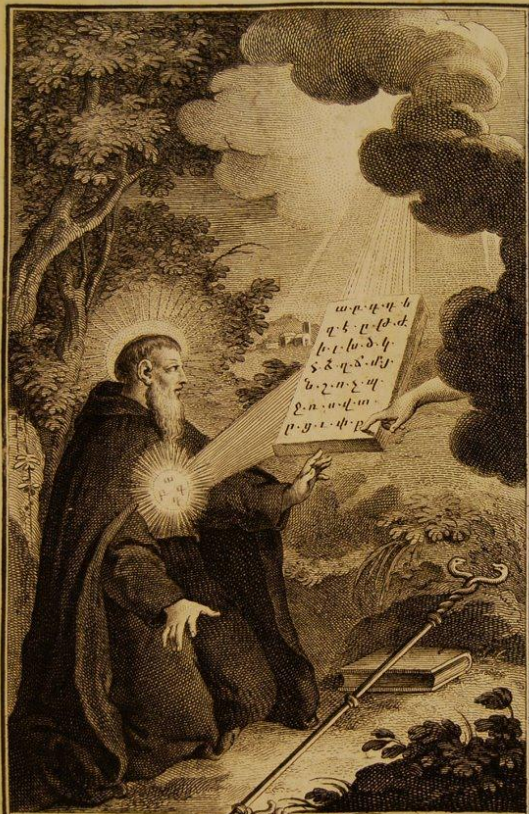 ա.բ.գ.դ.ե
զ.է.ը.թ.ժ
ի.լ.խ.ծ.կ
հ.ձ.ղ.ճ.մ.յ
ն.շ.ո.չ.պ
ջ.ռ.ս.վ.տ
ր.ց.ւ.փ.ք
ա